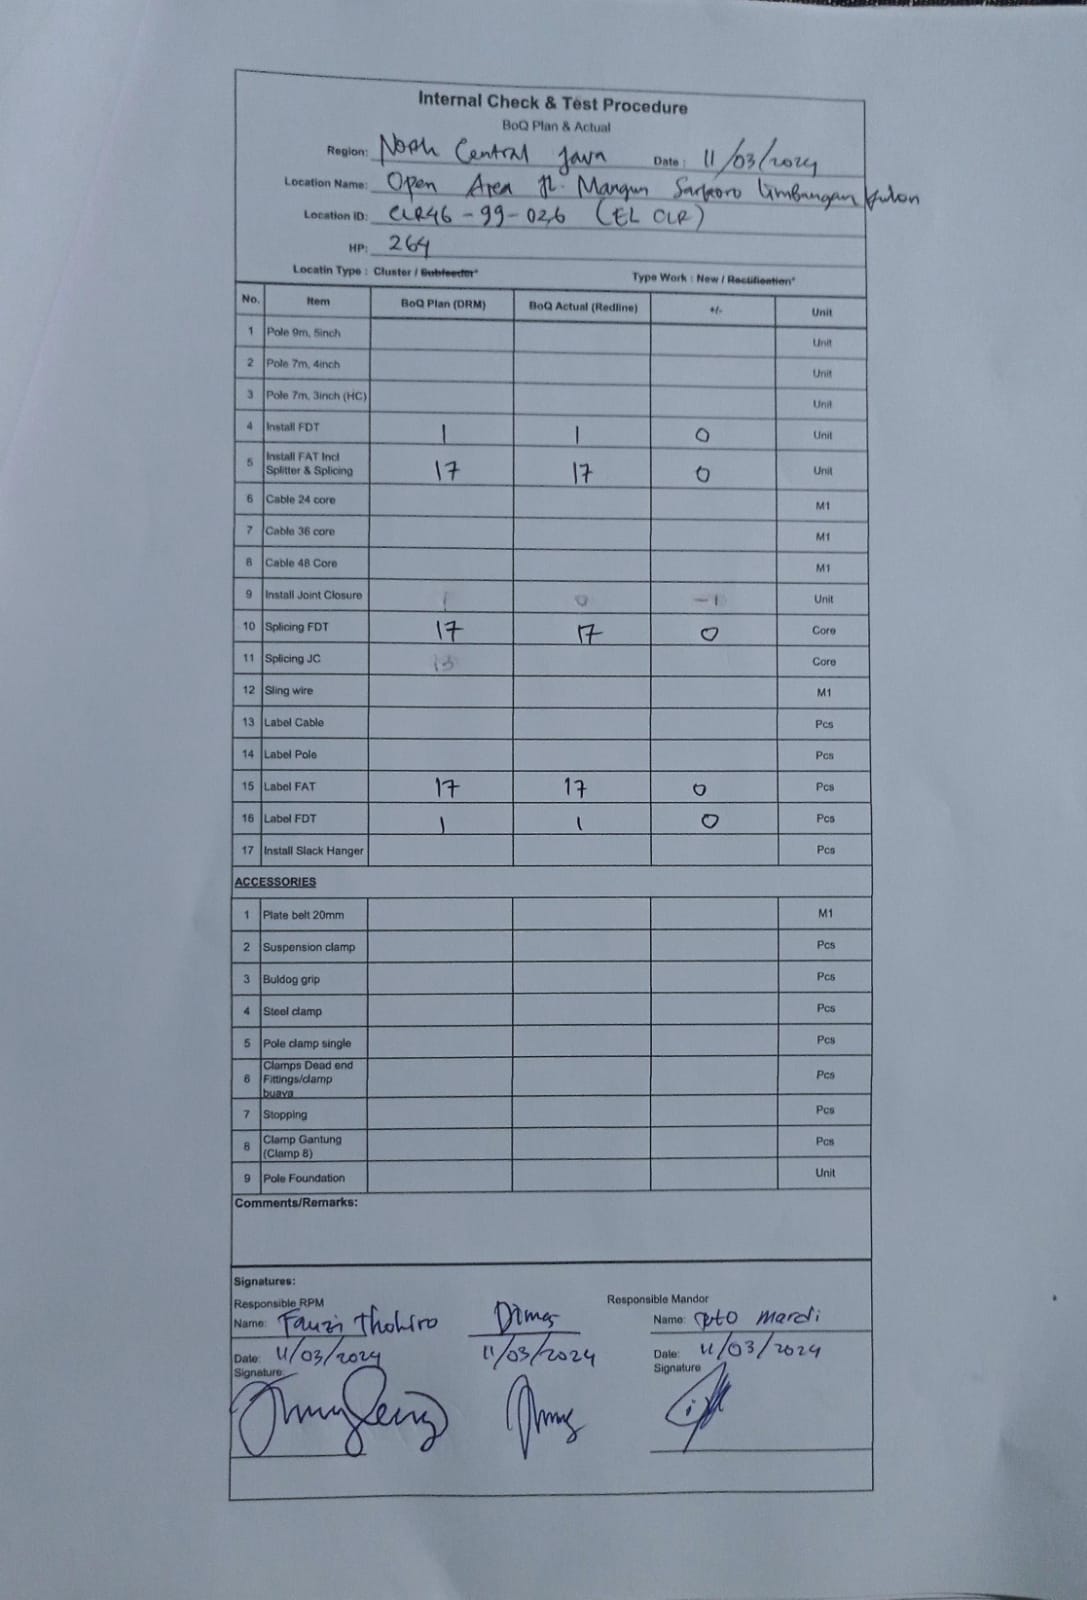 Internal Check & Test Procedure
BoQ Plan & Actual
Region: North Central Java Date : 11/03/2024
Location Name: Open Area Jl. Mangun Sarkoro Limbangan Kulon
Location ID: CLR46-99-026 (EL CLR)
HP: 264
Locatin Type : Cluster / Subfeeder* Type Work : New / Rectification*
No. Item BoQ Plan (DRM) BoQ Actual (Redline) +/- Unit
1 Pole 9m, 5inch Unit
2 Pole 7m, 4inch Unit
3 Pole 7m, 3inch (HC) Unit
4 Install FDT 1 1 0 Unit
5 Install FAT Incl Splitter & Splicing 17 17 0 Unit
6 Cable 24 core M1
7 Cable 36 core M1
8 Cable 48 Core M1
9 Install Joint Closure 1 0 -1 Unit
10 Splicing FDT 17 17 0 Core
11 Splicing JC Core
12 Sling wire M1
13 Label Cable Pcs
14 Label Pole Pcs
15 Label FAT 17 17 0 Pcs
16 Label FDT 1 1 0 Pcs
17 Install Slack Hanger Pcs
ACCESSORIES
1 Plate belt 20mm M1
2 Suspension clamp Pcs
3 Buldog grip Pcs
4 Steel clamp Pcs
5 Pole clamp single Pcs
6 Clamps Dead end Fittings/clamp buaya Pcs
7 Stopping Pcs
8 Clamp Gantung (Clamp 8) Pcs
9 Pole Foundation Unit
Comments/Remarks:
Signatures:
Responsible RPM Responsible Mandor
Name: Fauzi Dimas Name: mardi
Date: 11/03/2024 11/03/2024 Date: 11/03/2024
Signature: Signature